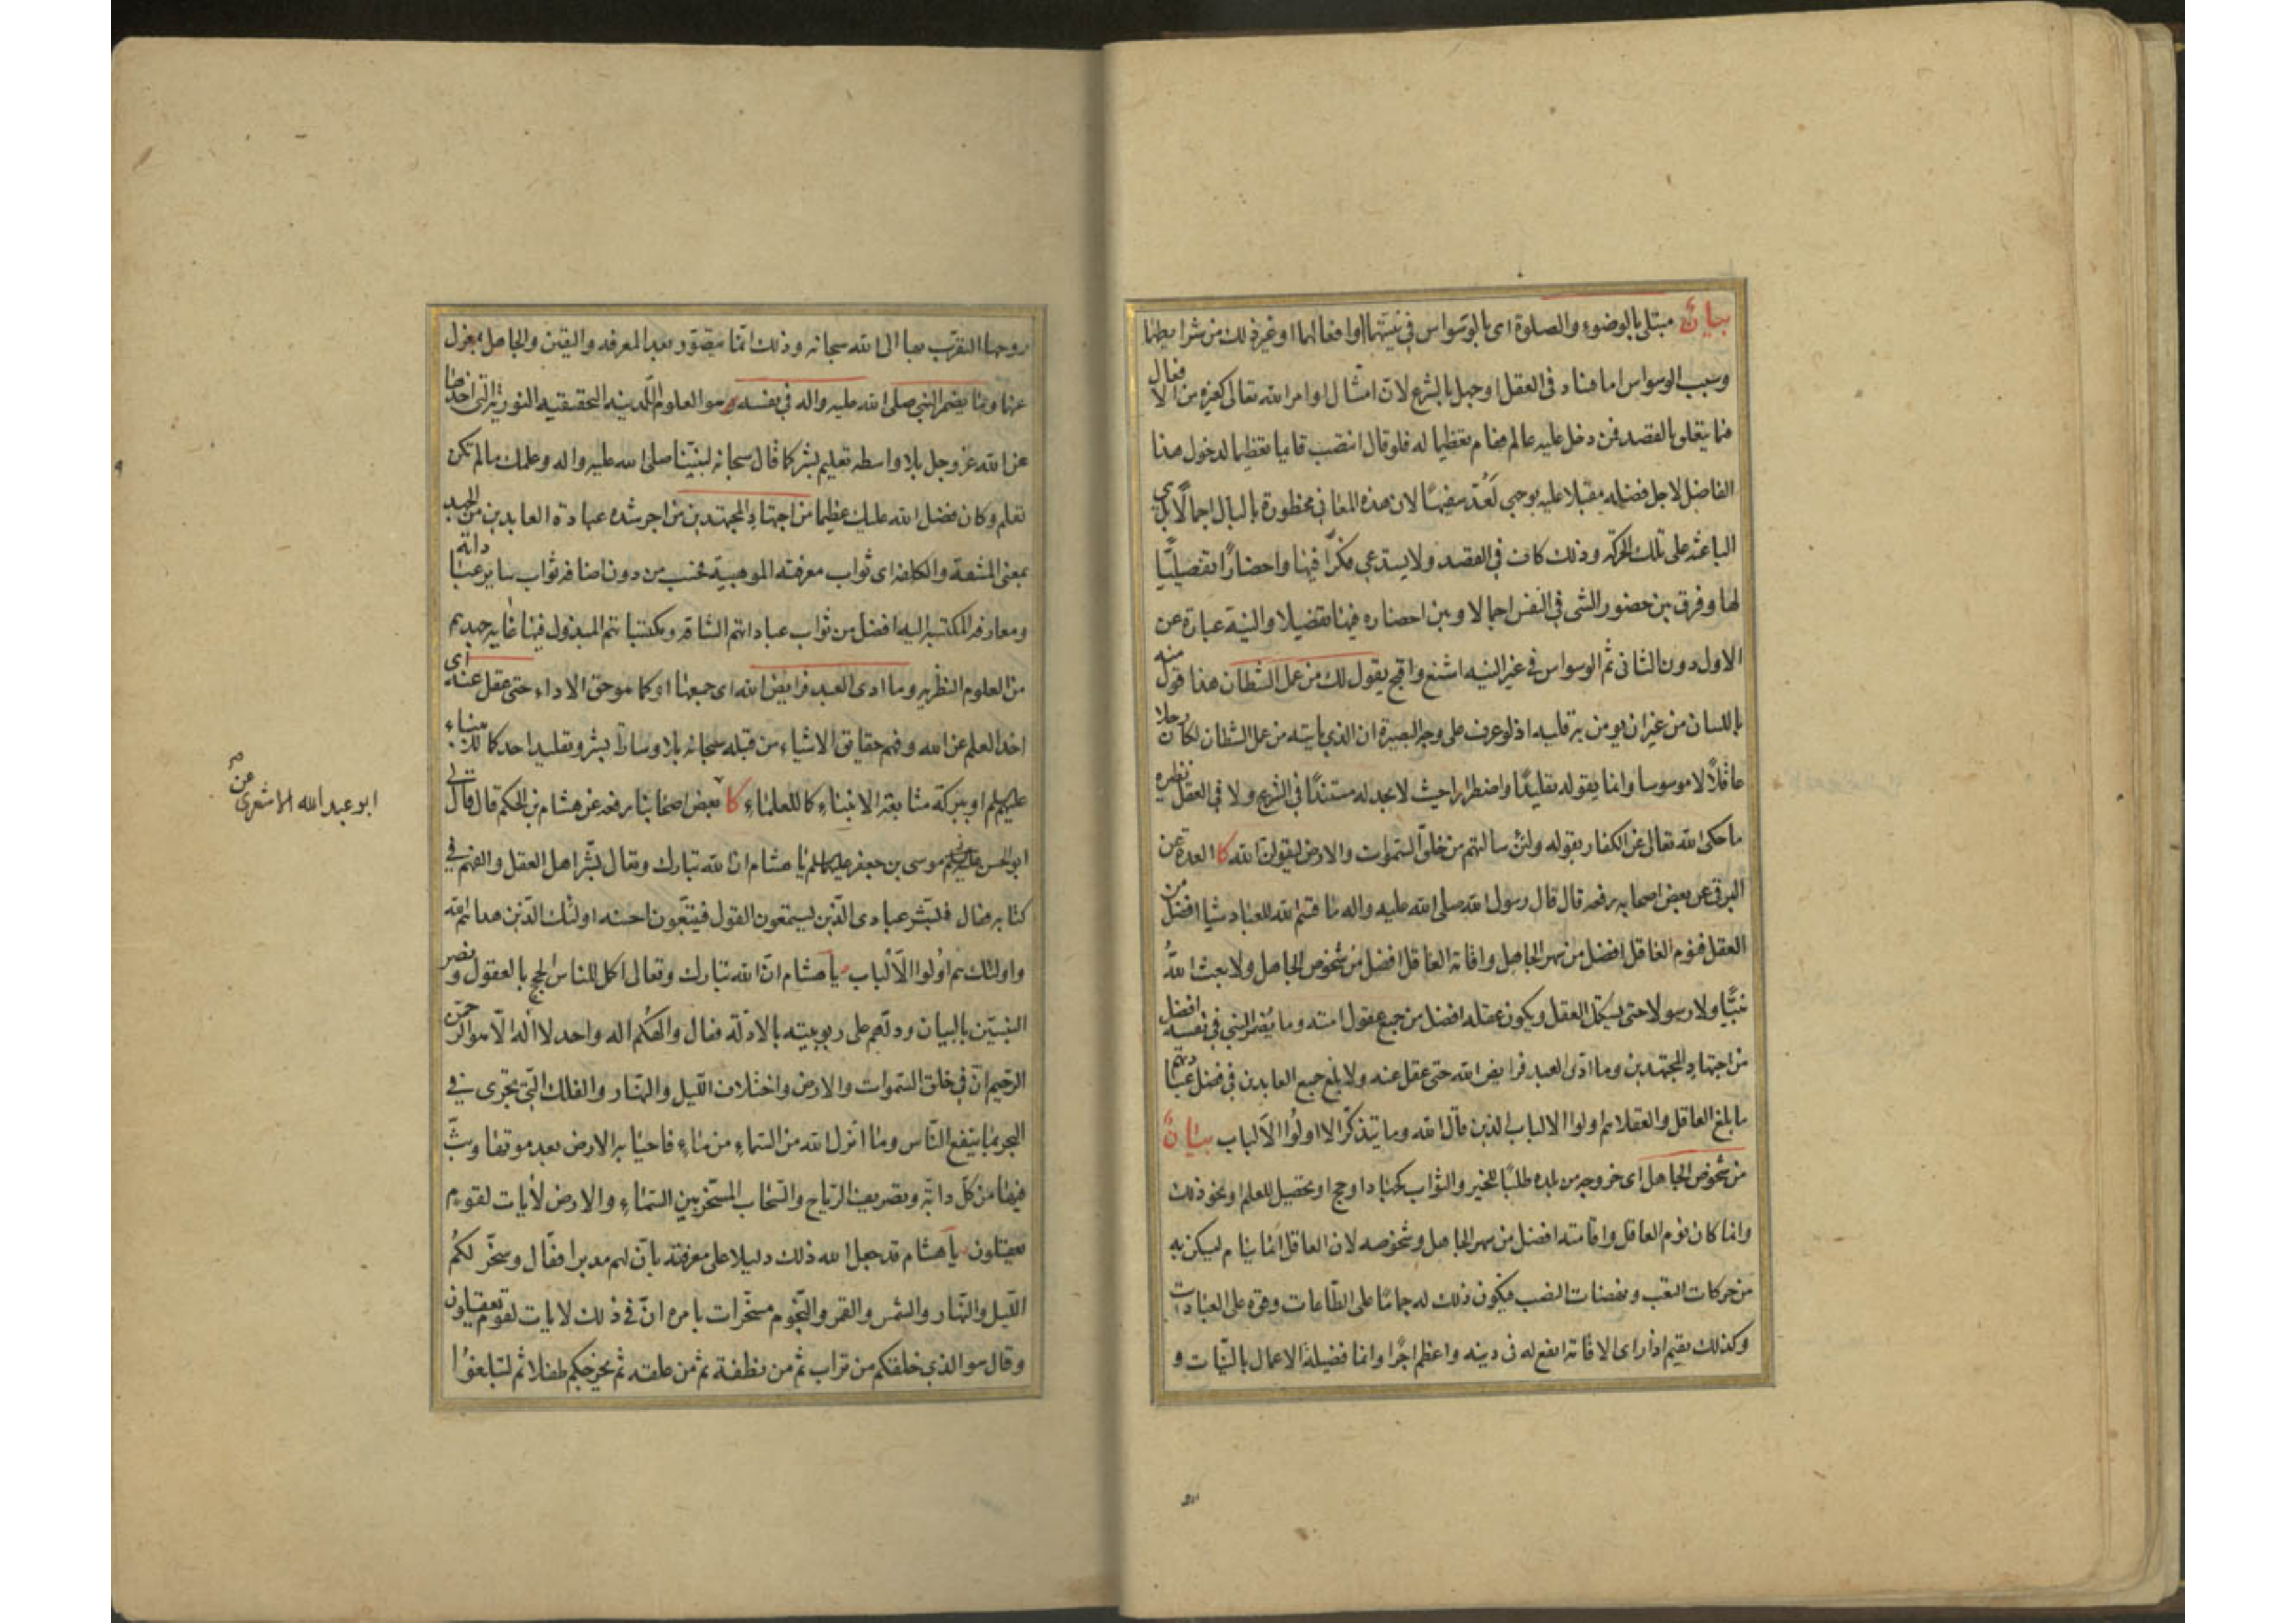 بيان مبتلى بالوضوء والصلوة اى بالوسواس فى نيتهما او افعالهما او غير ذلك من شرايطهما
وسبب الوسواس اما فساد فى العقل او جهل بالشرع لان امتثال اوامر الله تعالى كغيره من الافعال
مما يتعلق بالقصد فمن دخل عليه عالم فقام تعظيما له فلو قال انتصب قايما تعظيما لدخول هذا
الفاضل لاجل فضله مقبلا عليه بوجهى لعُدّ سفيهًا لان هذه المعانى مخطورة بالبال اجمالًا بل هى
الباعثة على تلك الحركة وذلك كاف فى القصد ولا يستدعى فكرًا فيها واحضارًا تفصيليًّا
لها وفرق بين حضور الشى فى النفس اجمالا وبين احضاره فيها تفصيلا والنية عبارة عن
الاول دون الثانى ثم الوسواس فى غير النية اشنع واقبح يقول لك من عمل الشيطان هذا قول منه
باللسان من غير ان يومن به قلبه اذ لو عرف على وجه البصيرة ان الذى ياتيه من عمل الشيطان لكان رجلا
عاقلًا لا موسوسا وانما يقوله تقليدًا واضطرارا حيث لا يجد له مستندًا فى الشرع ولا فى العقل نظيره
ما حكى الله تعالى عن الكفار بقوله ولئن سالتهم من خلق السّموات والارض ليقولن الله كا العدة عن
البرقى عن بعض اصحابه رفعه قال قال رسول الله صلى الله عليه واله ما قسم الله للعباد شيئا افضل من
العقل فنوم العاقل افضل من سهر الجاهل واقامة العاقل افضل من شخوص الجاهل ولا بعث اللهُ
نبيًّا ولا رسولا حتى يستكمل العقل ويكون عقله افضل من جميع عقول امته وما يُضمر النبى فى نفسه افضل
من اجتهادِ المجتهدين وما ادّى العبد فرايض الله حتى عقل عنه ولا بلغ جميع العابدين فى فضل عبادتهم
ما بلغ العاقل والعقلاء هم اولوا الالباب الذين قال الله وما يتذكّر الا اولُوا الألباب بيان
من شخوص الجاهل اى خروجه من بلده طلبًا للخير والثواب كجهاد او حج او تحصيل للعلم او نحو ذلك
وانما كان نوم العاقل واقامته افضل من سهر الجاهل وشخوصه لان العاقل انما ينام ليسكن به
من حركات التعب ونهضات النصب فيكون ذلك له جمامًا على الطّاعات وقوة على العبادات
وكذلك يقيم اذا راى الاقامة انفع له فى دينه واعظم اجرًا وانما فضيلة الاعمال بالنيّات و
روحها التقرّب بها الى الله سبحانه وذلك انّما يتصوّر بعد المعرفه واليقين والجاهل بمعزل
عنها وما يضمر النبى صلى الله عليه واله فى نفسه هو العلوم اللّدنيه الحقيقيه النوريه التى اخذها
عن الله عز وجل بلا واسطه تعليم بشر كما قال سبحانه لنبيّنا صلى الله عليه واله وعلمك ما لم تكن
تعلم وكان فضل الله عليك عظيما من اجتهادِ المجتهدين من اجر شده عبادة العابدين من الجهد
بمعنى المشقة والكلفه اى ثواب معرفته الموهبيّة فحسب من دون اضافة ثواب ساير عباداته
ومعارفه المكتسبه اليه افضل من ثواب عباداتهم الشاقه ومكتسباتهم المبذول فيها غاية جهدهم
من العلوم النظريه وما ادى العبد فرايض الله اى جميعها او كما هو حق الاداء حتى عقل عنه اى
اخذ العلم عن الله وفهم حقايق الاشياء من قبله سبحانه بلا وساطة بشر وتقليد احد كما للانبياء
عليهم السلم او ببركة متابعة الانبياءِ كما للعلماءِ كا بعض اصحابنا رفعه عن هشام بن الحكم قال قال لى
ابو الحسن موسى بن جعفر عليهما السلم يا هشام ان الله تبارك وتعالى بشّر اهل العقل والفهم فى
كتابه فقال فبشّر عبادى الّذين يستمعون القول فيتّبعون احسنه اولئك الّذين هداهم الله
واولئك هم اُولوا الألباب يا هشام انّ الله تبارك وتعالى اكمل للناس الحجج بالعقول ونصر
النبيّين بالبيان ودلّهم على ربوبيته بالادلّة فقال والهكُم اله واحد لا اله الّا هو الرّحمن
الرّحيم انّ فى خلق السّموات والارض واختلاف اللّيل والنّهار والفلك الّتى تجرى فى
البحر بما ينفع النّاس وما انزل الله من السّماءِ من ماءٍ فاحيا به الارض بعد موتها وبثّ
فيها من كلّ دابّة وتصريف الرّياح والسّحاب المسخّر بين السّماءِ والارض لأيات لقوم
يعقلون يا هشام قد جعل الله ذلك دليلا على معرفته بانّ لهم مدبرا فقال وسخّر لكُم
اللّيل والنّهار والشمس والقمر والنّجوم مسخّرات بامره انّ فى ذلك لايات لقوم يعقلون
وقال هو الذي خلقكم من تراب ثم من نطفة ثم من علقه ثم يخرجكم طفلا ثم لتبلغوُا
ابو عبد الله الاشعرى عن